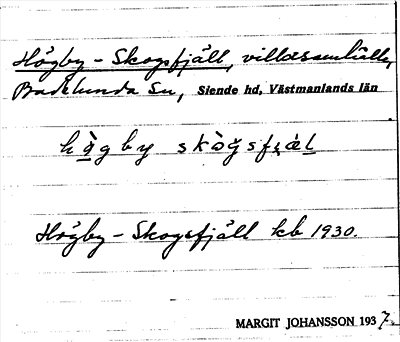 Högby - Skogsfjäll, villasamhälle,
Badelunda Sn, Siende hd, Västmanlands län
hö̀gby skò̀gsfjäl
Högby - Skogsfjäll kb 1930.
MARGIT JOHANSSON 1937.